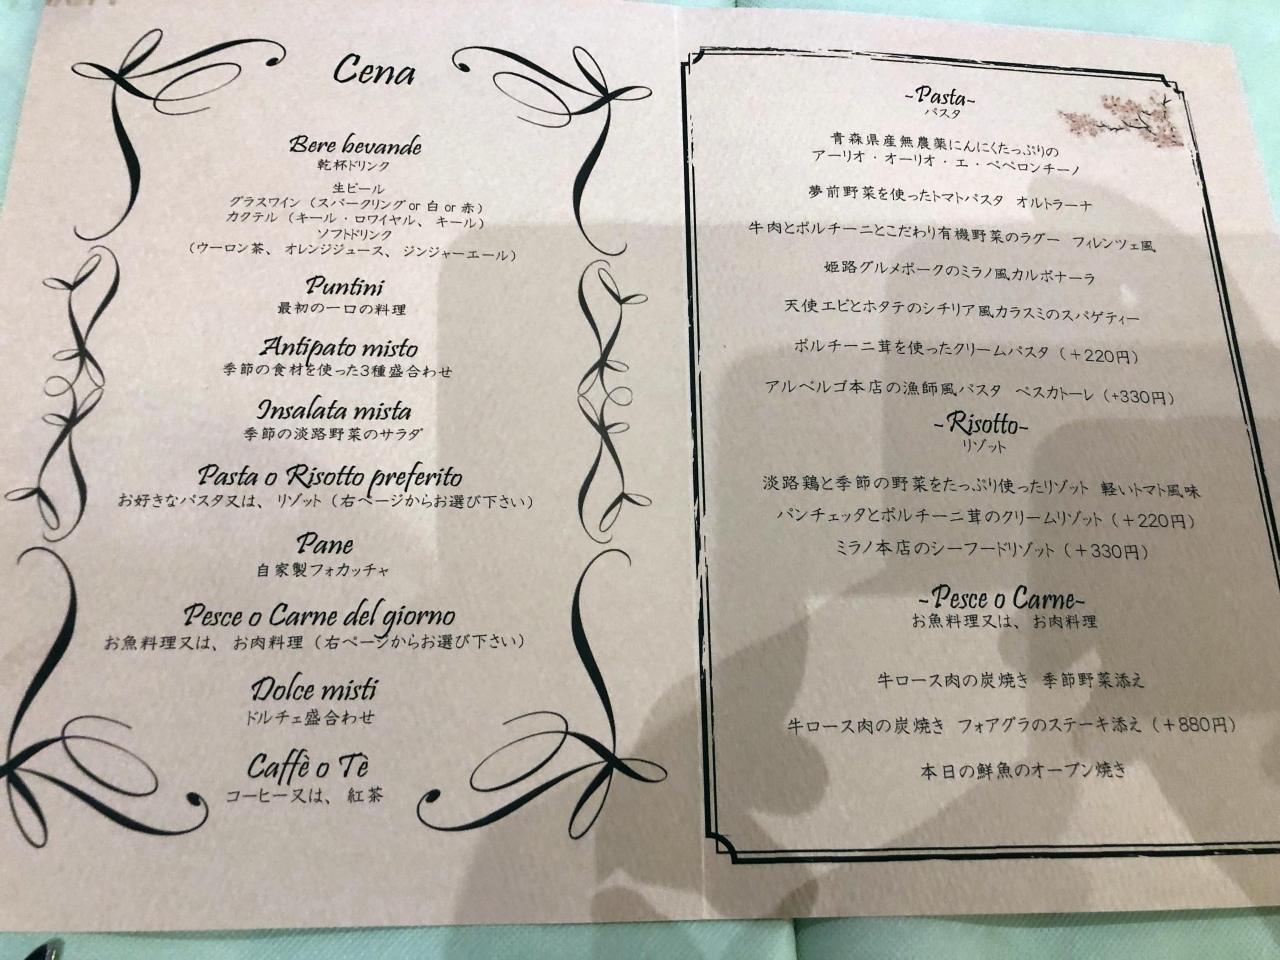 Cena
Bere bevande
乾杯ドリンク
生ビール
グラスワイン（スパークリング or 白 or 赤）
カクテル（キール・ロワイヤル、 キール）
ソフトドリンク
（ウーロン茶、 オレンジジュース、 ジンジャーエール）
Puntini
最初の一口の料理
Antipato misto
季節の食材を使った3種盛合わせ
Insalata mista
季節の淡路野菜のサラダ
Pasta o Risotto preferito
お好きなパスタ又は、 リゾット（右ページからお選び下さい）
Pane
自家製フォカッチャ
Pesce o Carne del giorno
お魚料理又は、 お肉料理（右ページからお選び下さい）
Dolce misti
ドルチェ盛合わせ
Caffè o Tè
コーヒー又は、 紅茶
-Pasta-
パスタ
青森県産無農薬にんにくたっぷりの
アーリオ・オーリオ・エ・ペペロンチーノ
夢前野菜を使ったトマトパスタ オルトラーナ
牛肉とポルチーニとこだわり有機野菜のラグー フィレンツェ風
姫路グルメポークのミラノ風カルボナーラ
天使エビとホタテのシチリア風カラスミのスパゲティー
ポルチーニ茸を使ったクリームパスタ（＋220円）
アルベルゴ本店の漁師風パスタ ペスカトーレ（+330円）
-Risotto-
リゾット
淡路鶏と季節の野菜をたっぷり使ったリゾット 軽いトマト風味
パンチェッタとポルチーニ茸のクリームリゾット（＋220円）
ミラノ本店のシーフードリゾット（＋330円）
-Pesce o Carne-
お魚料理又は、 お肉料理
牛ロース肉の炭焼き 季節野菜添え
牛ロース肉の炭焼き フォアグラのステーキ添え（＋880円）
本日の鮮魚のオーブン焼き